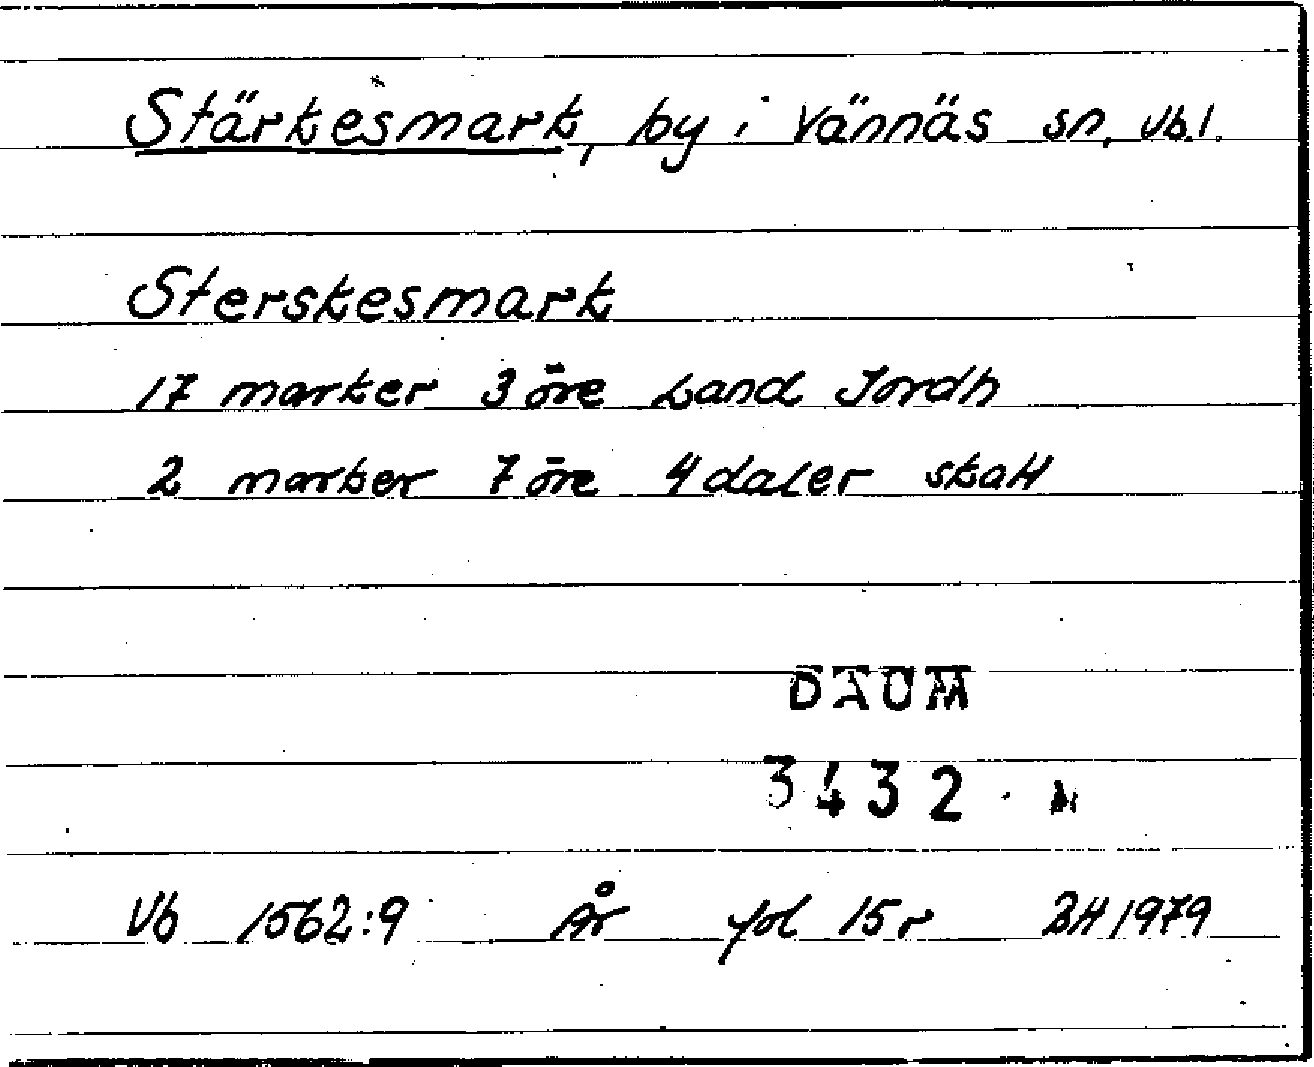 Stärkesmark, by i Vännäs sn, Vb.l.
Sterskesmark
17 marker 3 öre Land Jordh
2 marker 7 öre 4 daler skatt
DAUM
3432
Vb 1562:9 År fol 15 r BH 1979